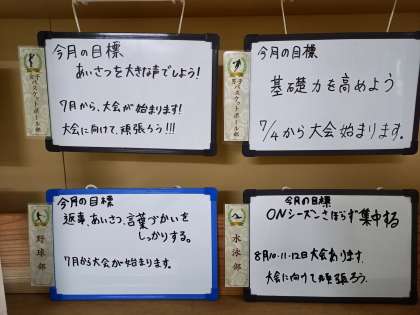 女子バスケットボール部
今月の目標
あいさつを大きな声でしよう!
7月から、大会が始まります!
大会に向けて、頑張ろう!!!
男子バスケットボール部
今月の目標
基礎力を高めよう
7/4から大会始まります。
野球部
今月の目標
返事、あいさつ、言葉づかいを
しっかりする。
7月から大会が始まります。
水泳部
今月の目標
ONシーズンさぼらず集中する
8月10・11・12日大会あります。
大会に向けて頑張ろう。